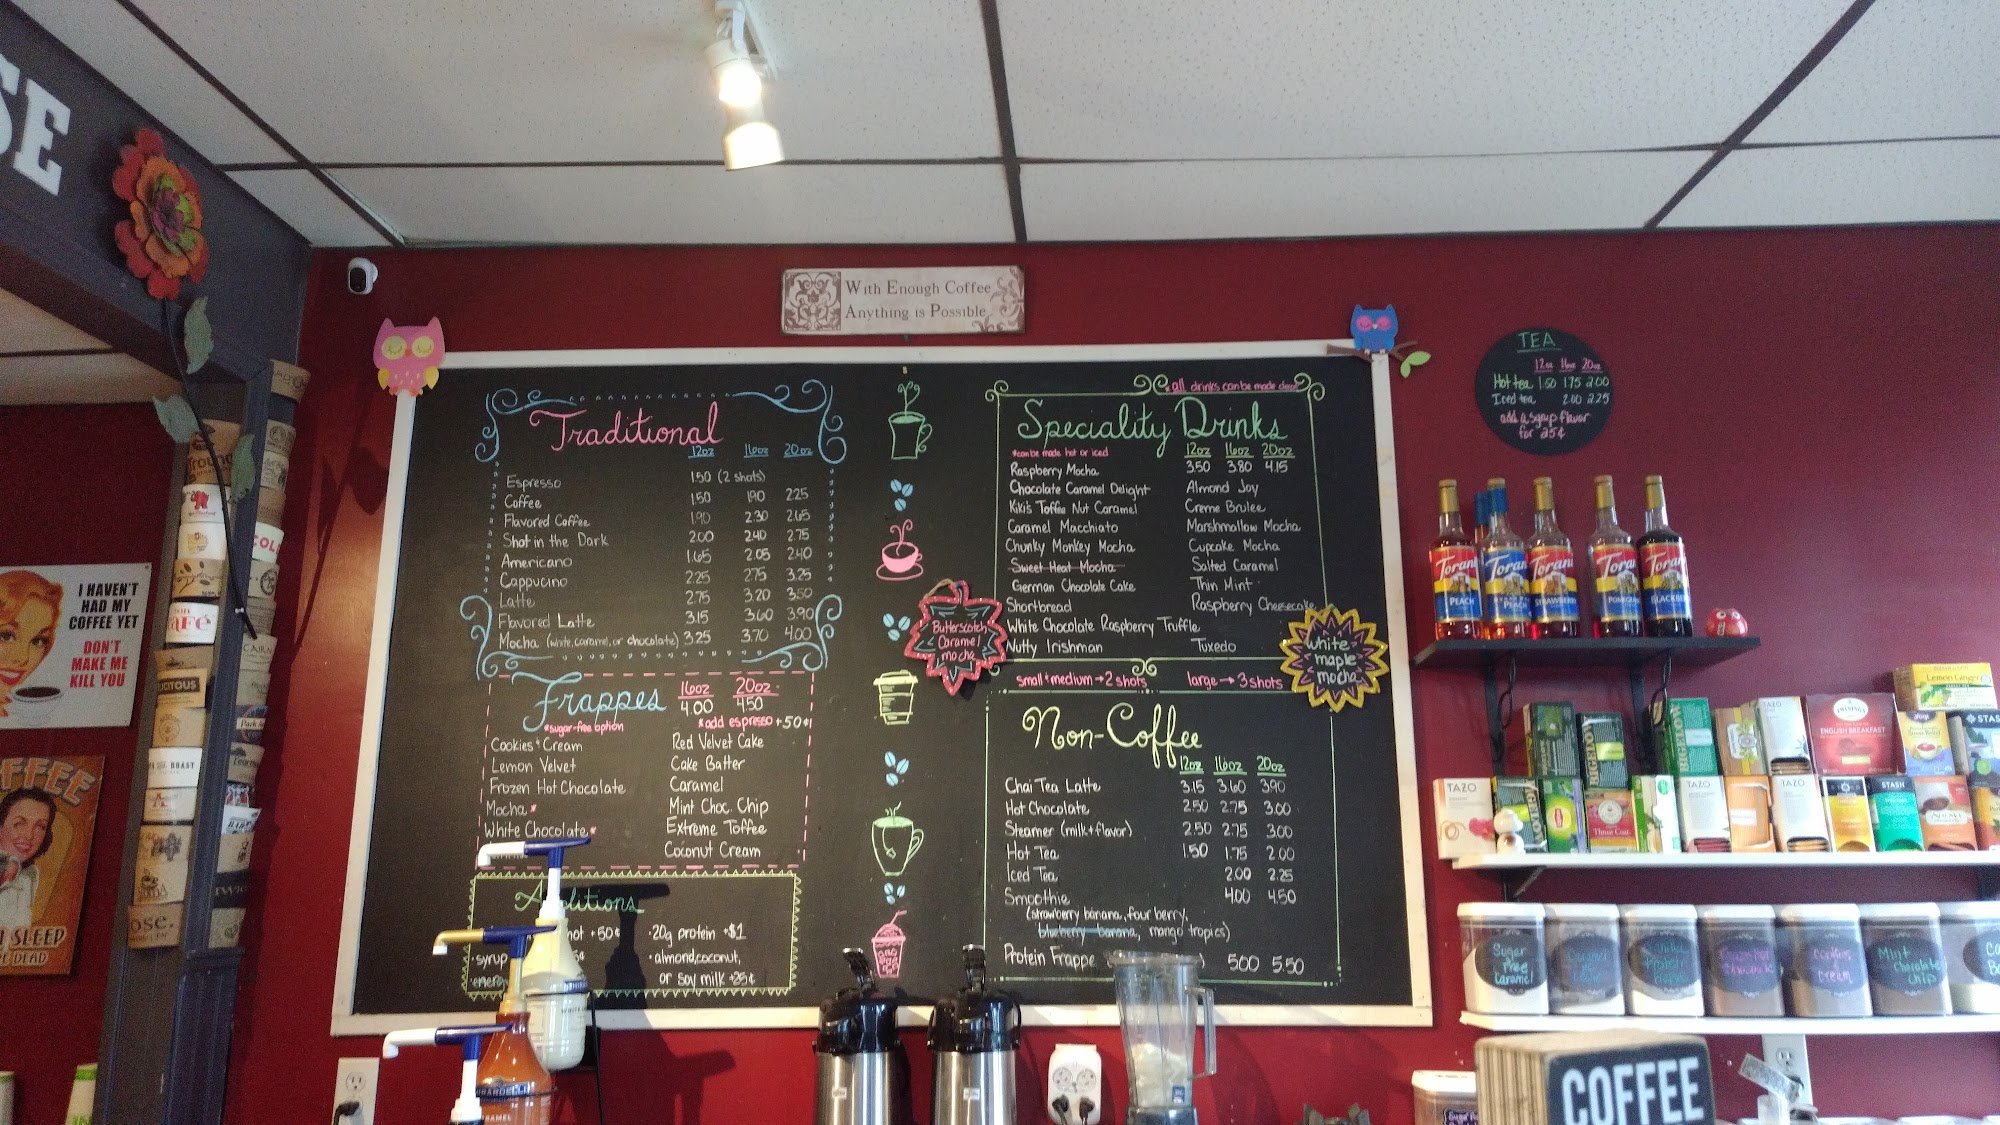 SE
With Enough Coffee
Anything is Possible
I HAVEN'T
HAD MY
COFFEE YET
DON'T
MAKE ME
KILL YOU
SLEEP
DEAD
Traditional
12oz 16oz 20oz
Espresso 1.50 (2 shots)
Coffee 1.50 1.90 2.25
Flavored Coffee 1.90 2.30 2.65
Shot in the Dark 2.00 2.40 2.75
Americano 1.65 2.05 2.40
Cappucino 2.25 2.75 3.25
Latte 2.75 3.20 3.50
Flavored Latte 3.15 3.60 3.90
Mocha (white, caramel, or chocolate) 3.25 3.70 4.00
Frappes 16oz 20oz
4.00 4.50
*sugar-free option *add espresso +50¢
Cookies + Cream Red Velvet Cake
Lemon Velvet Cake Batter
Frozen Hot Chocolate Caramel
Mocha* Mint Choc Chip
White Chocolate* Extreme Toffee
Coconut Cream
Additions
+50¢ · 20g protein +$1
syrup · almond, coconut,
energy or soy milk +25¢
*all drinks can be made
Specialty Drinks
*can be made hot or iced 12oz 16oz 20oz
3.50 3.80 4.15
Raspberry Mocha
Chocolate Caramel Delight Almond Joy
Kiki's Toffee Nut Caramel Creme Brulee
Caramel Macchiato Marshmallow Mocha
Chunky Monkey Mocha Cupcake Mocha
Sweet Heat Mocha Salted Caramel
German Chocolate Cake Thin Mint
Shortbread Raspberry Cheesecake
White Chocolate Raspberry Truffle
Nutty Irishman Tuxedo
small + medium → 2 shots large → 3 shots
Butterscotch
Caramel
mocha
white
maple
mocha
Non-Coffee
12oz 16oz 20oz
Chai Tea Latte 3.15 3.60 3.90
Hot Chocolate 2.50 2.75 3.00
Steamer (milk + flavor) 2.50 2.75 3.00
Hot Tea 1.50 1.75 2.00
Iced Tea 2.00 2.25
Smoothie 4.00 4.50
(strawberry banana, four berry,
blueberry banana, mango tropics)
Protein Frappe 5.00 5.50
TEA
12oz 16oz 20oz
Hot tea 1.50 1.75 2.00
Iced tea 2.00 2.25
add a syrup flavor
for 25¢
Torani Torani Torani Torani Torani
PEACH PEACH STRAWBERRY
Lemon Ginger
TAZO
TWININGS
ENGLISH BREAKFAST
yogi
STASH
BIGELOW
TAZO
Lipton
Throat Coat
TAZO
TAZO
STASH
Sugar
Free
Caramel
Cookies
Cream
Mint
chocolate
chip
COFFEE